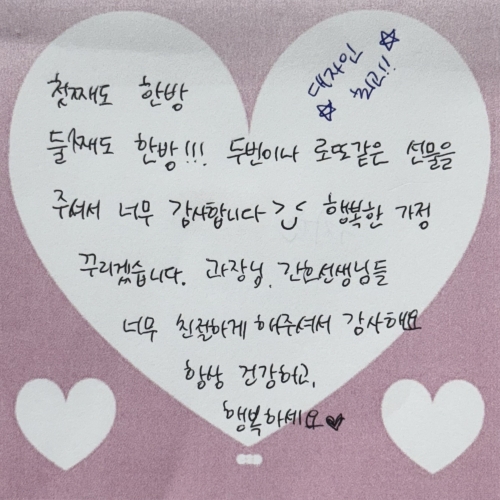 ☆ 대자인
☆ 최고!!
첫째도 한방
둘째도 한방!!! 두번이나 로또같은 선물을
주셔서 너무 감사합니다 행복한 가정
꾸리겠습니다. 과장님, 간호선생님들
너무 친절하게 해주셔서 감사해요
항상 건강하고,
행복하세요♥